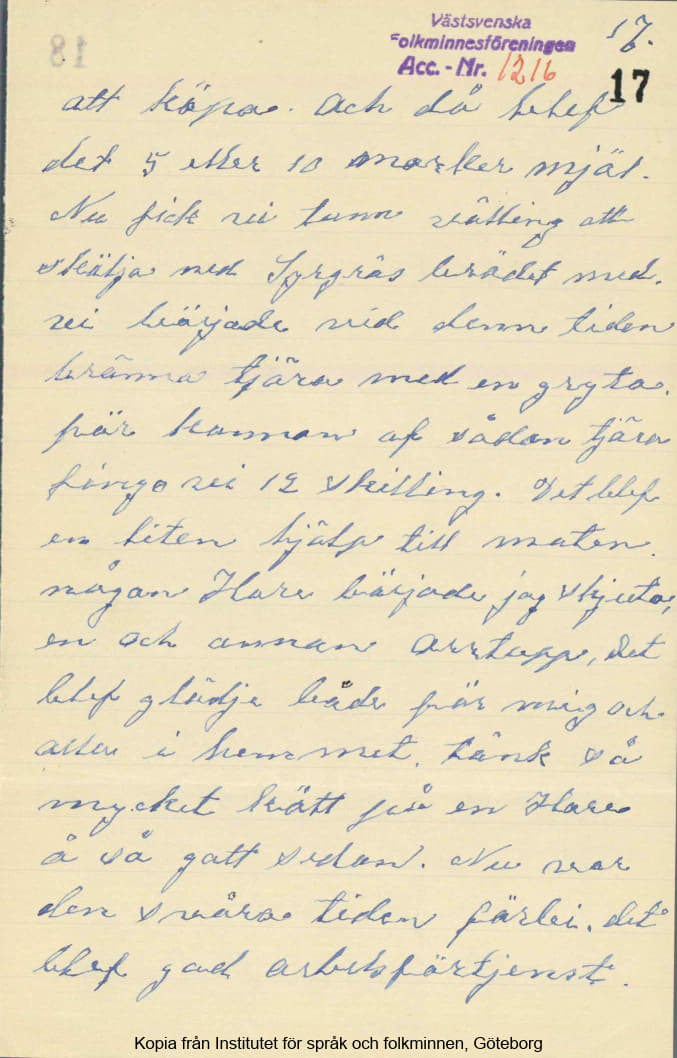 Västsvenska
Folkminnesföreningen
Acc. - Nr. 1216
17.
17
att köpa. Och då blef
det 5 eller 10 marker mjöl.
Nu fick vi tunn välling att
skölja ned Syrgräs brödet med.
vi började vid denn tiden
bränna tjära med en gryta.
för kannan af sådan tjära
fingo vi 12 skilling. Det blef
en liten hjälp till maten.
någon Hare började jag skjuta,
en och annan Orrtupp, det
blef glädje både för mig och
alla i hemmet. tänk så
mycket kött på en Hare
å så gott sedan. Nu var
den svåra tiden förbi. det
blef god arbetsförtjenst.
Kopia från Institutet för språk och folkminnen, Göteborg